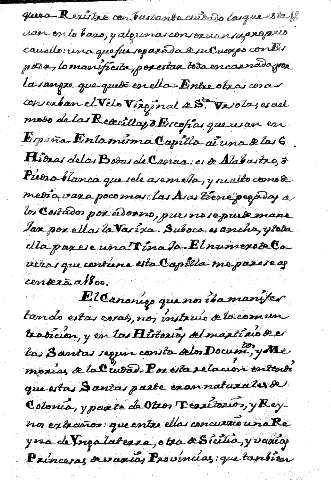 quero Rexistre con bustando cuidado las que esta
van en lo baxo, y algunas conservan su proprio
cavello: una que fue separada de su Cuerpo con Es
pada, lo manifiesta, por estar toda encarnada por
la sangre que quedò en ella. Entre otras cosas
conserban el Velo Virginal de Sta Vrsola; es al
modo de las Redecillas, ò Escofias que usan en
España. En la misma Capilla ai una de las 6
Hidras de las Bodas de Canaa: es de Alabastro, ò
Piedra blanca que se le asemeja, y su alto como de
media vara poco mas: las Asas tiene pegadas a
los Costados por adorno, pues no se puede mane
jar por ellas la Vasixa. Su boca es ancha, y toda
ella parese una Tinaja. El numero de Ca
vezas que contiene esta Capilla me parese as
cenderà a 1800.
El Canonigo que nos iba manifes
tando estas cosas, nos instruiò de la comun
tradicion, y en las Historias del martirio de es
tas Santas segun consta de los Documtos, y Me
morias de la Ciudad. Por esta relacion entendi
que estas Santas parte eran naturales de
Colonia, y parte de Otros Territorios, y Rey-
nos extraños: que entre ellas concurriò una Re
yna de Yngalaterra, otra de Sicilia, y varias
Princesas de varias Provincias: que tambien